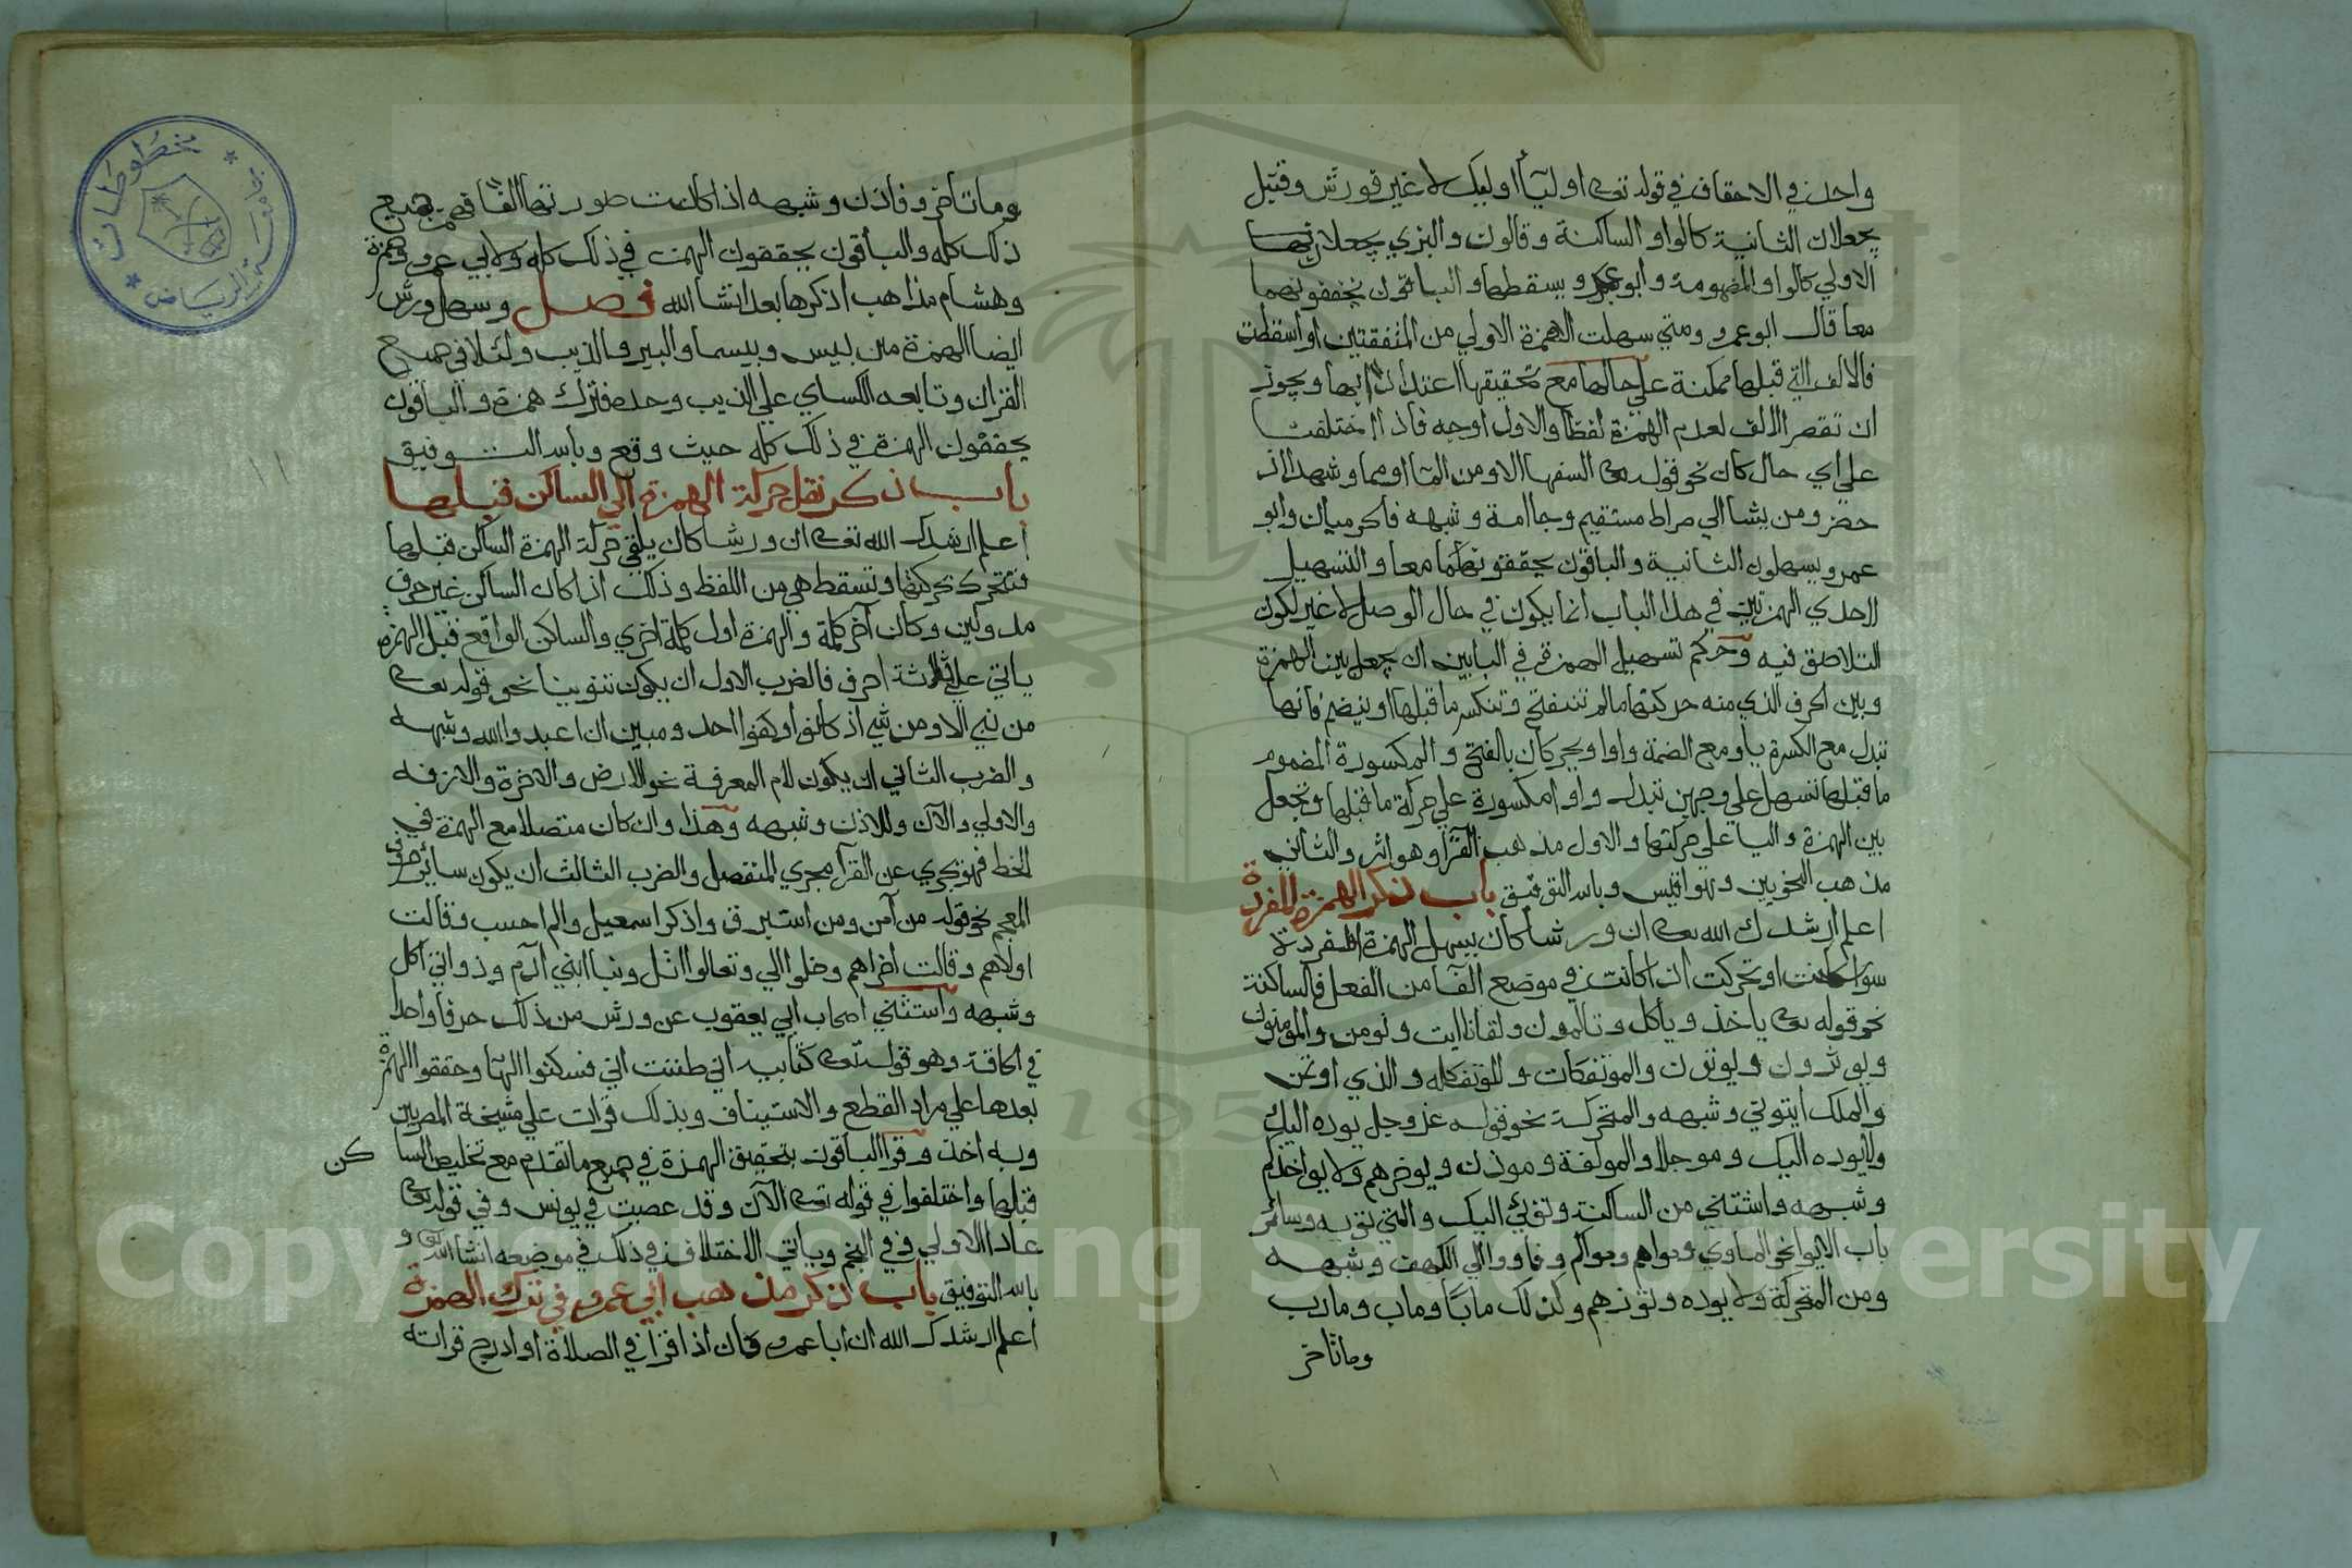 واحد في الاحقاف في قوله تعى اوليآ اوليك لا غير فورش وقنبل
يجعلان الثانية كالواو الساكنة وقالون والبزي يجعلان
الاولي كالواو المضمومة وابو عمرو يسقطها والباقون يخففونهما
معا قال ابو عمرو ومتي سهلت الهمزة الاولي من المتفقتين او اسقطت
فالالف التي قبلها ممكنة علي حالها مع تحقيقها اعتدادا بها ويجوز
ان تقصر الالف لعدم الهمزة لفظا والاول اوجه فاذا اختلفت
علي اي حال كان نحو قوله تعى السفها الا ومن الما او مما وشهدا اذ
حضر ومن يشا الي صراط مستقيم وجا امة وشبهه فالحرميان وابو
عمرو يسهلون الثانية والباقون يحققونهما معا والتسهيل
لاحدي الهمزتين في هذا الباب انما يكون في حال الوصل لا غير لكون
التلاصق فيه وحكم تسهيل الهمزة في البابين ان يجعل بين الهمزة
وبين الحرف الذي منه حركتها ما لم تنفتح وتنكسر ما قبلها او ينضم فانها
تبدل مع الكسرة يا ومع الضمة واوا ويحركان بالفتح والمكسورة المضموم
ما قبلها تسهل علي وجهين تبدل واوا مكسورة علي حركة ما قبلها وتجعل
بين الهمزة واليا علي حركتها والاول مذهب القرا وهو اثر والثاني
مذهب النحويين وهو اقيس وبالله التوفيق باب ذكر الهمزة المفردة
اعلم ارشدك الله تعى ان ورشا كان يسهل الهمزة المفردة
سوا كانت او تحركت اذا كانت في موضع الفا من الفعل فالساكنة
نحو قوله تعى ياخذ وياكل وتالمون ولقانا ايت ونومن والمومنون
ويوثرون ويوتون والموتفكات والموتفكه والذي اوتمن
والملك ايتوني وشبهه والمتحركة نحو قوله عز وجل يوده اليك
ولا يوده اليك وموجلا والمولفة وموذن ويوخرهم ولا يواخذكم
وشبهه واستثني من الساكنة وتوي اليك والتي تويه وسائر
باب الايوا نحو الماوي وماواهم وماواكم وفاووا الي الكهف وشبهه
ومن المتحركة ولا يوده وتوزهم وكذلك مابا وماب ومارب
وما تاخر
وما تاخر وفاذن وشبهه اذا كانت صورتها الفا فهمز جميع
ذلك كله والباقون يحققون الهمزة في ذلك كله ولابي عمرو وحمزة
وهشام مذاهب اذكرها بعد انشا الله فصل وسهل ورش
ايضا الهمزة من بيس وبيسما والبير والذيب ولئلا في جميع
القران وتابعه الكساي علي الذيب وحده فترك همزه والباقون
يحققون الهمزة في ذلك كله حيث وقع وبالله التوفيق
باب ذكر نقل حركة الهمزة الي الساكن قبلها
اعلم ارشدك الله تعى ان ورشا كان يلقي حركة الهمزة الساكن قبلها
فتتحرك بحركتها وتسقط هي من اللفظ وذلك اذا كان الساكن غير حرف
مد ولين وكان آخر كلمة والهمزة اول كلمة اخري والساكن الواقع قبل الهمزة
ياتي علي ثلاثة احرف فالضرب الاول ان يكون تنوينا نحو قوله تعى
من نبي الا ومن شي اذ كانوا وكفوا احد ومبين ان اعبدوا الله وشبهه
والضرب الثاني ان يكون لام المعرفة نحو الارض والاخرة والازفه
والاولي والآن وللاذن وشبهه وهذا وان كان متصلا مع الهمزة في
الخط فهو يجري عن القرآ مجري المنفصل والضرب الثالث ان يكون سائر حروف
المعجم نحو قوله من آمن ومن استبرق واذكر اسمعيل والم احسب وقالت
اولاهم وقالت اخراهم وخلوا الي وتعالوا اتل ونبا ابني آدم وذواتي اكل
وشبهه واستثني اصحاب ابي يعقوب عن ورش من ذلك حرفا واحدا
في الحاقة وهو قوله تعى كتابيه اني ظننت اني فسكنوا الهآ وحققوا الهمزة
بعدها علي مراد القطع والاستيناف وبذلك قرات علي مشيخة المصريين
وبه اخذ وقرا الباقون بتحقيق الهمزة في جميع ما تقدم مع تخليص الساكن
قبلها واختلفوا في قوله تعى الآن وقد عصيت في يونس وفي قوله تعى
عادا الاولي في والنجم وياتي الاختلاف في ذلك في موضعه انشا الله تعى و
بالله التوفيق باب ذكر مذهب ابي عمرو في ترك الهمزة
اعلم ارشدك الله ان ابا عمرو كان اذا قرا في الصلاة او ادرج قراته
مخطوطات
جامعة الرياض
1957
Copyright © King Saud University